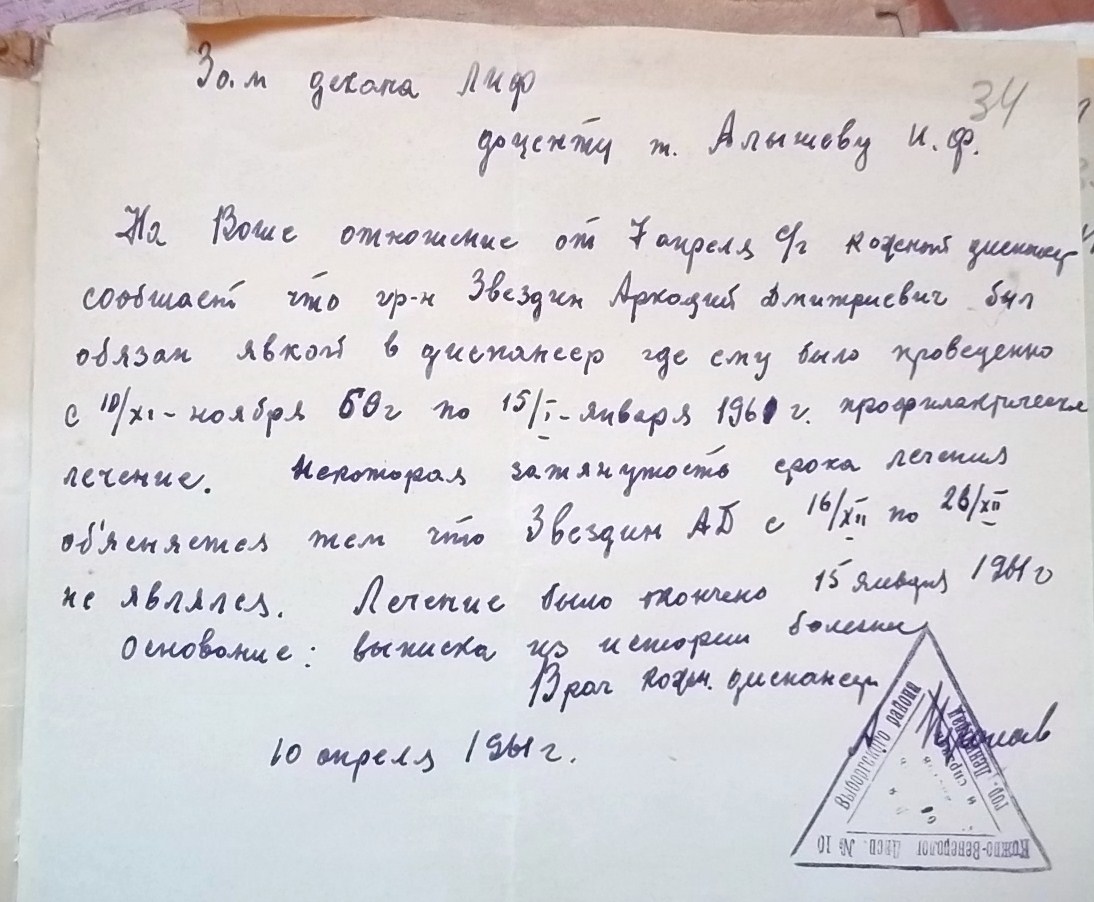 Зам декана ЛИФ
34
доценту т. Алышеву И. Ф.
На Ваше отношение от 7 апреля с/г кожный диспансер
сообщает что гр-н Звездин Аркадий Дмитриевич был
обязан явкой в диспансер где ему было проведенно
с 10/XI - ноября 60 г по 15/I - января 1961 г. профилактическое
лечение. Некоторая затянутость срока лечения
об'ясняется тем что Звездин АД с 16/XII по 26/XII
не являлся. Лечение было окончено 15 января 1961 г
Основание: выписка из истории болезни
Врач кожн. диспансер
10 апреля 1961 г.
Кожно-Венеролог Дисп. № 10
Выборгского района
гор. Ленинград